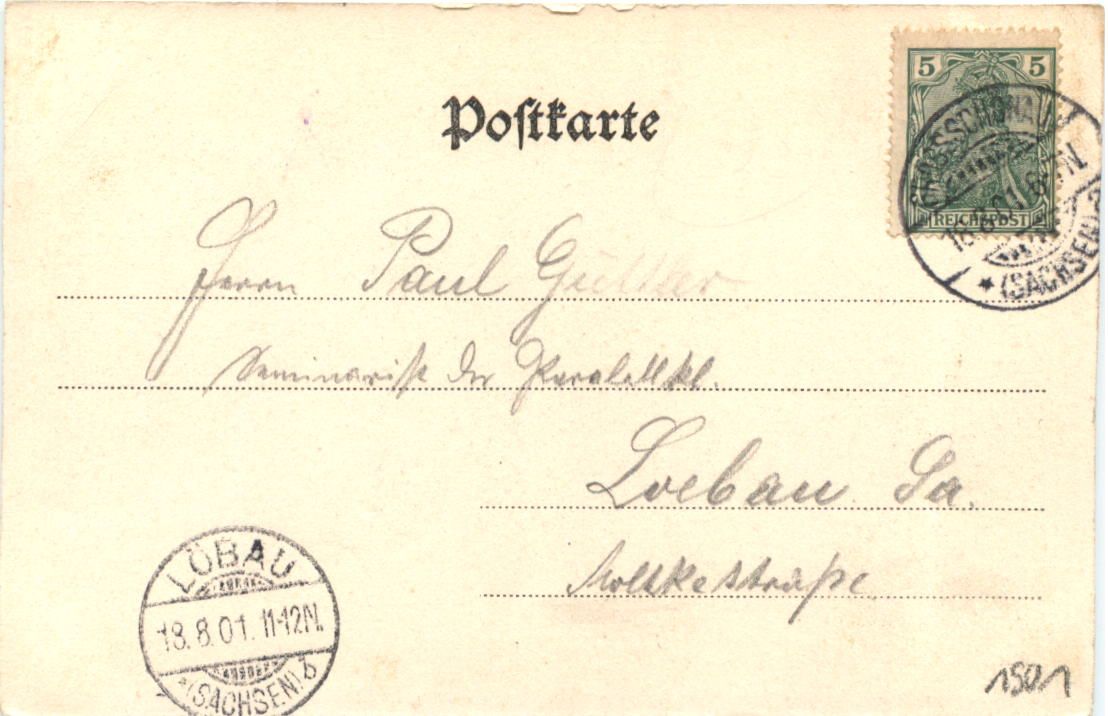 Postkarte
5 5
REICHSPOST
GROSSSCHÖNAU
18.8.01. 6-7N.
* (SACHSEN)
Herrn Paul
Seminarist der Parallelkl.
Loebau Sa.
Moltkestraße
LÖBAU
18.8.01. 11-12N.
*(SACHSEN) b
1501